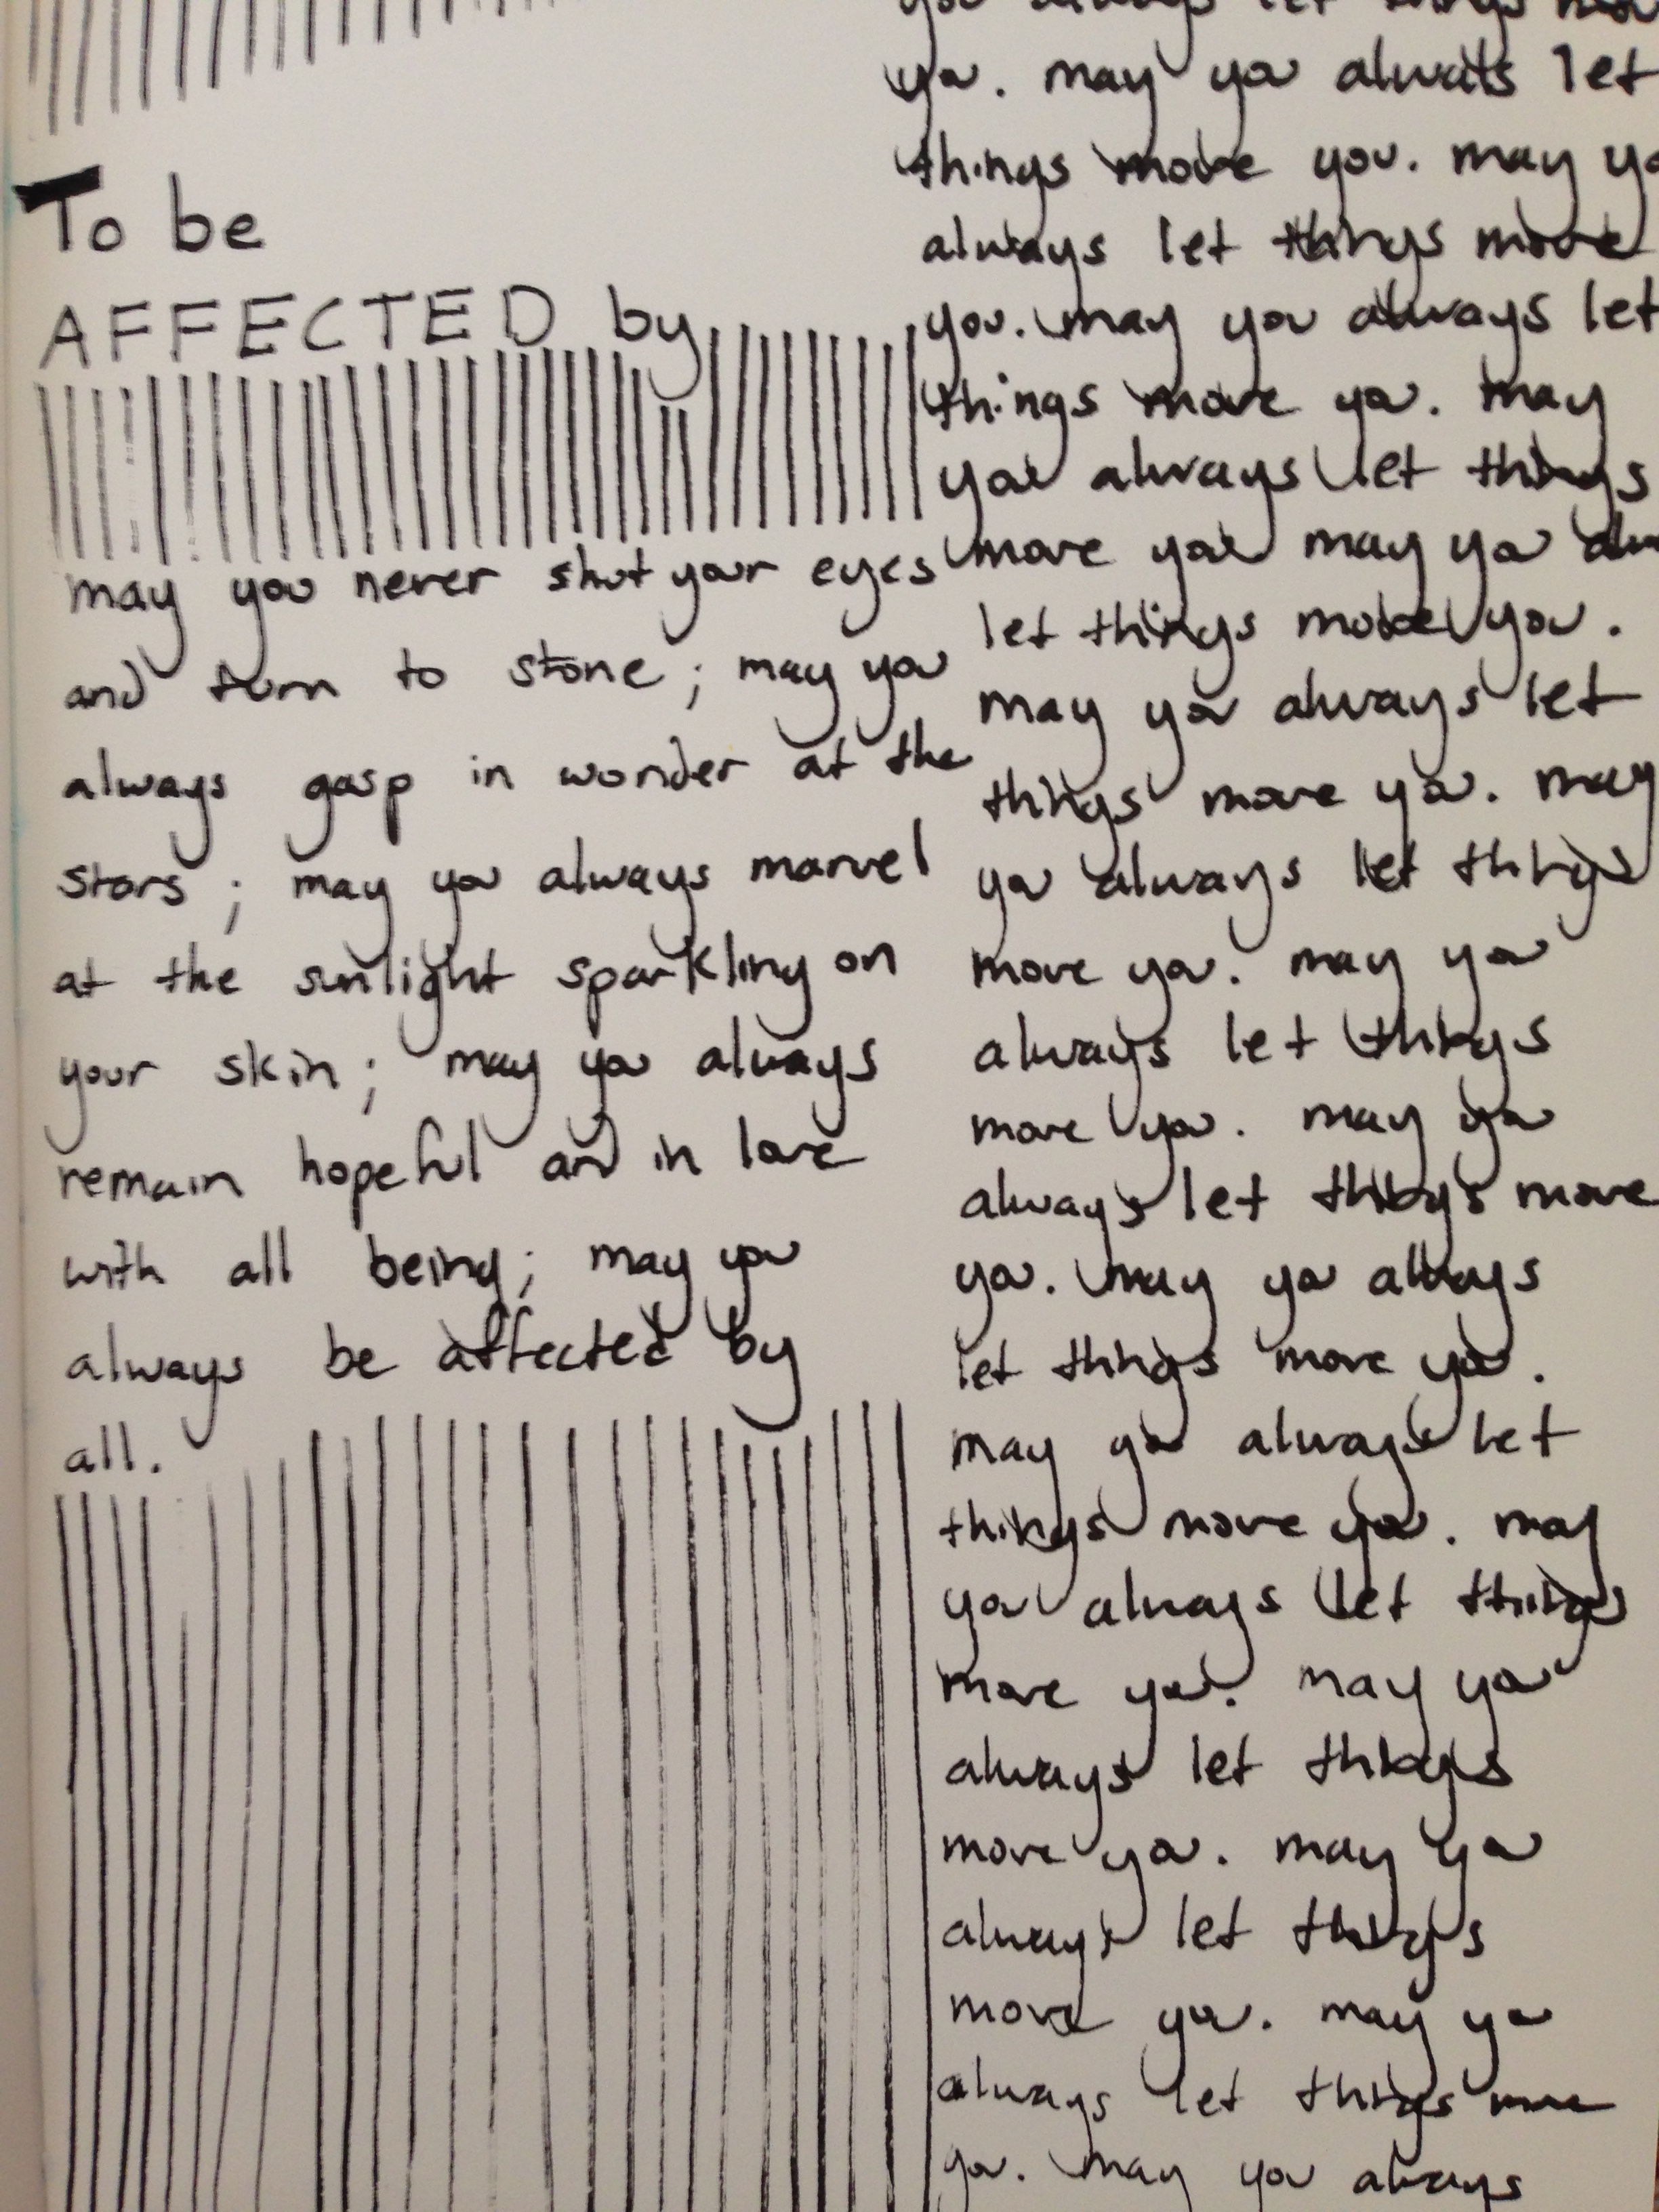 To be
AFFECTED by
may you never shut your eyes
and turn to stone; may you
always gasp in wonder at the
stars; may you always marvel
at the sunlight sparkling on
your skin; may you always
remain hopeful and in love
with all being; may you
always be affected by
all.
you always let things
you. may you always let
things move you. may
always let things move
you. may you always let
things move you. may
you always let things
move you may you
let things move you.
may you always let
things move you. may
you always let things
move you. may you
always let things
move you. may you
always let things move
you. may you always
let things move you.
may you always let
things move you. may
you always let things
move you. may you
always let things
move you. may you
always let things
move you. may you
always let things move
you. may you always